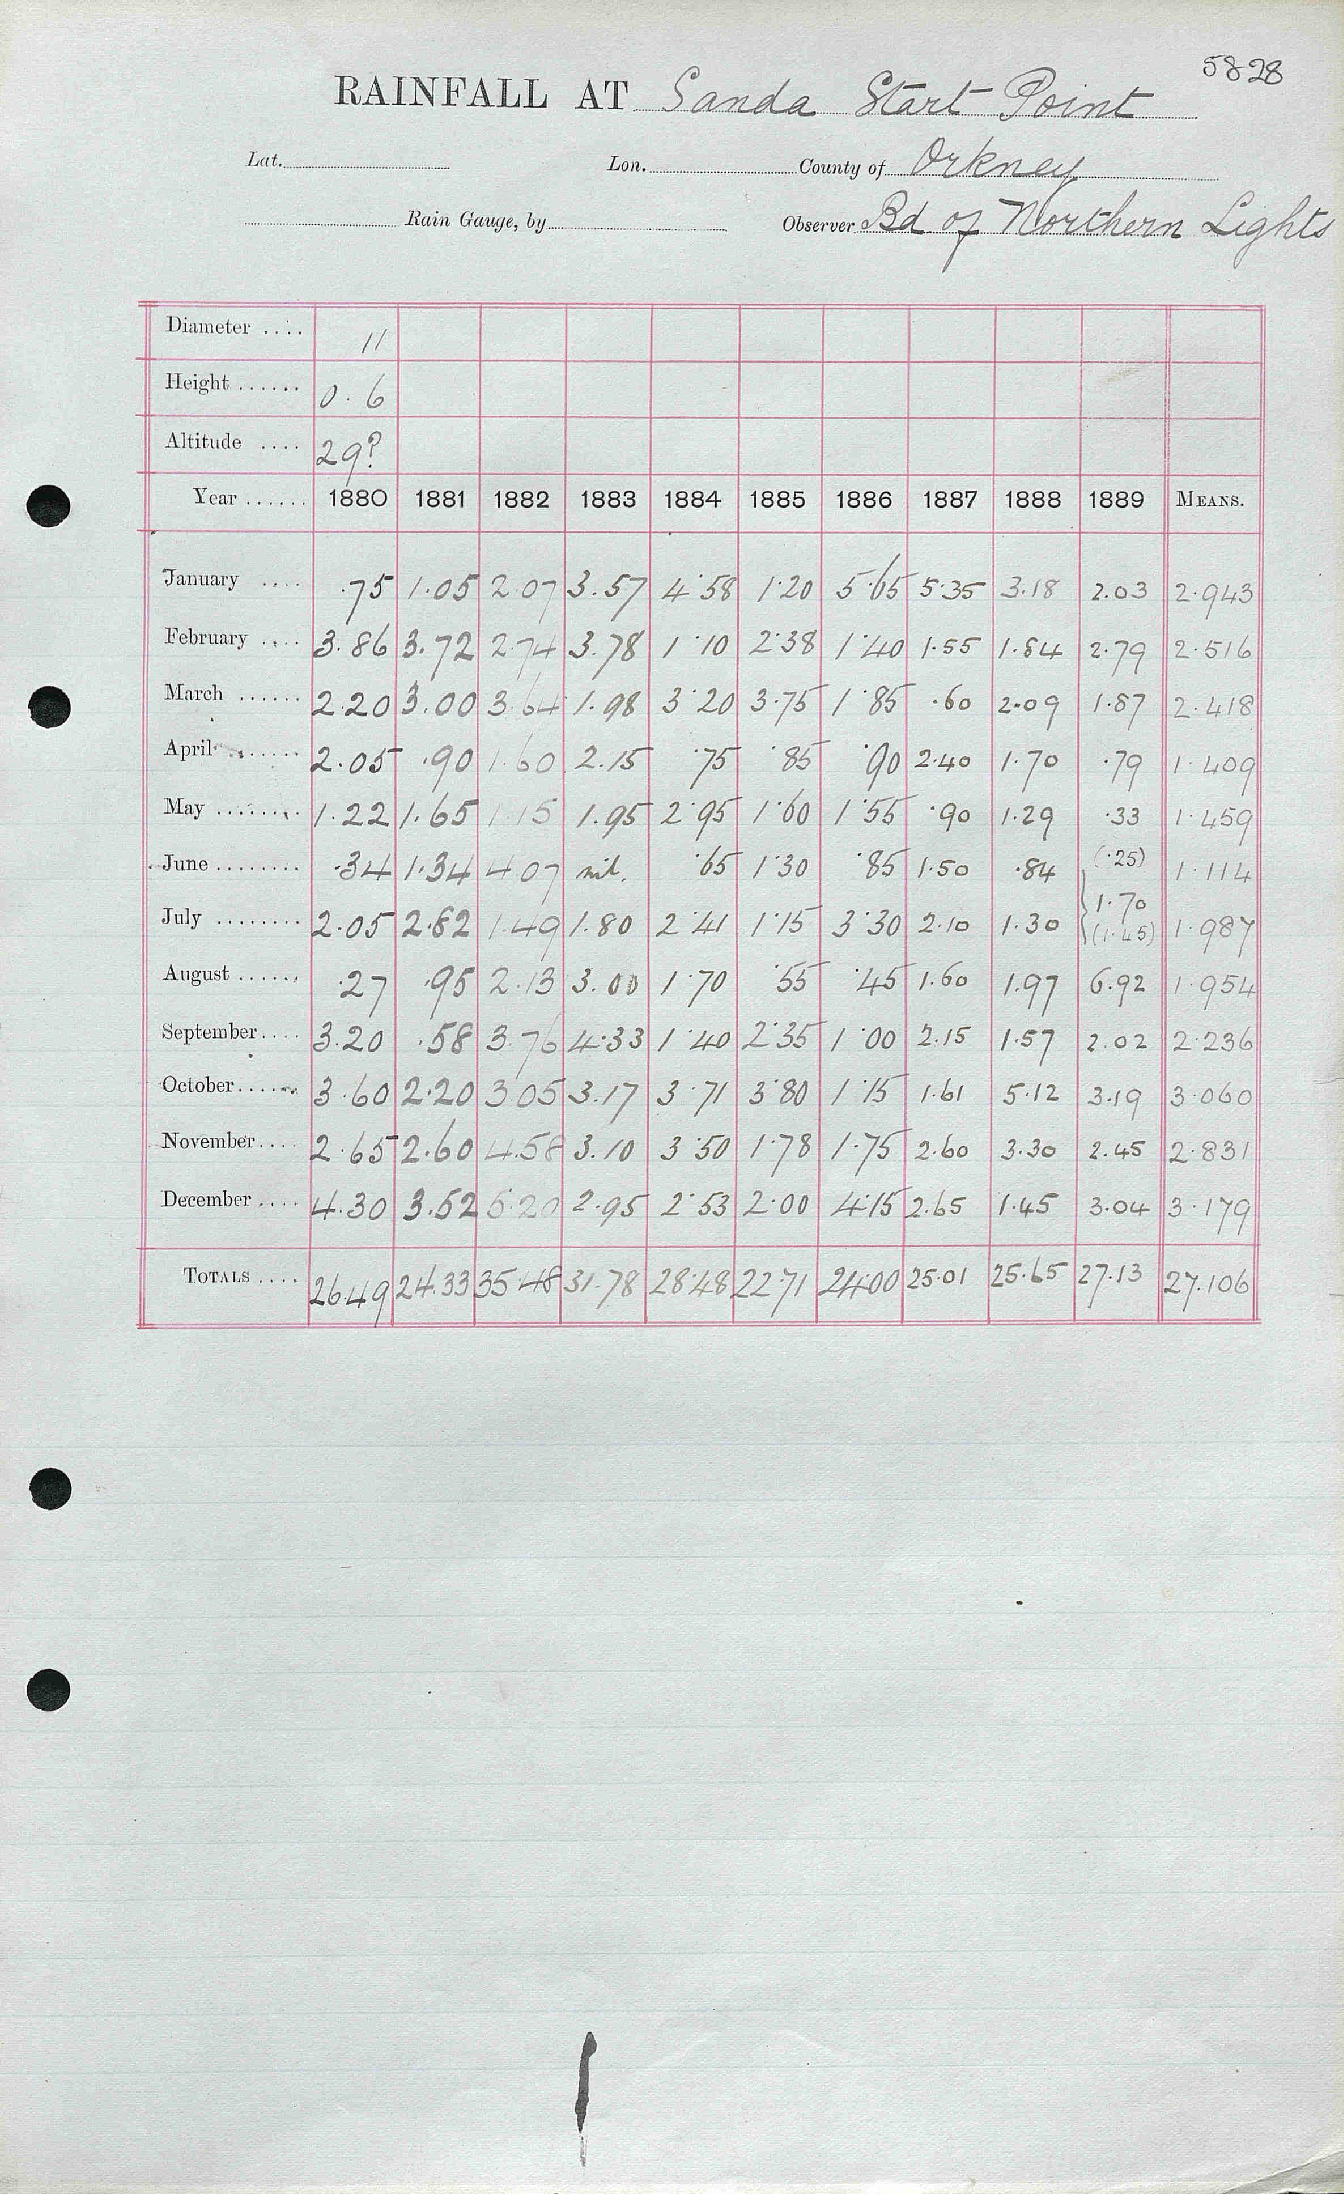 5828
RAINFALL AT Sanda Start Point
Lat. Lon. County of Orkney
Rain Gauge, by Observer Bd of Northern Lights
Diameter .... 11
Height ...... 0.6
Altitude .... 29?
Year ...... 1880 1881 1882 1883 1884 1885 1886 1887 1888 1889 MEANS.
January .... .75 1.05 2.07 3.57 4.58 1.20 5.65 5.35 3.18 2.03 2.943
February .... 3.86 3.72 2.74 3.78 1.10 2.38 1.40 1.55 1.84 2.79 2.516
March ...... 2.20 3.00 3.64 1.98 3.20 3.75 1.85 .60 2.09 1.87 2.418
April ...... 2.05 .90 1.60 2.15 .75 .85 .90 2.40 1.70 .79 1.409
May ........ 1.22 1.65 1.15 1.95 2.95 1.60 1.55 .90 1.29 .33 1.459
June ........ .34 1.34 4.07 nil. .65 1.30 .85 1.50 .84 (.25) 1.114
1.70
July ........ 2.05 2.82 1.49 1.80 2.41 1.15 3.30 2.10 1.30 (1.45) 1.987
August ...... .27 .95 2.13 3.00 1.70 .55 .45 1.60 1.97 6.92 1.954
September.... 3.20 .58 3.76 4.33 1.40 2.35 1.00 2.15 1.57 2.02 2.236
October...... 3.60 2.20 3.05 3.17 3.71 3.80 1.15 1.61 5.12 3.19 3.060
November.... 2.65 2.60 4.58 3.10 3.50 1.78 1.75 2.60 3.30 2.45 2.831
December .... 4.30 3.52 5.20 2.95 2.53 2.00 4.15 2.65 1.45 3.04 3.179
TOTALS .... 26.49 24.33 35.48 31.78 28.48 22.71 24.00 25.01 25.65 27.13 27.106